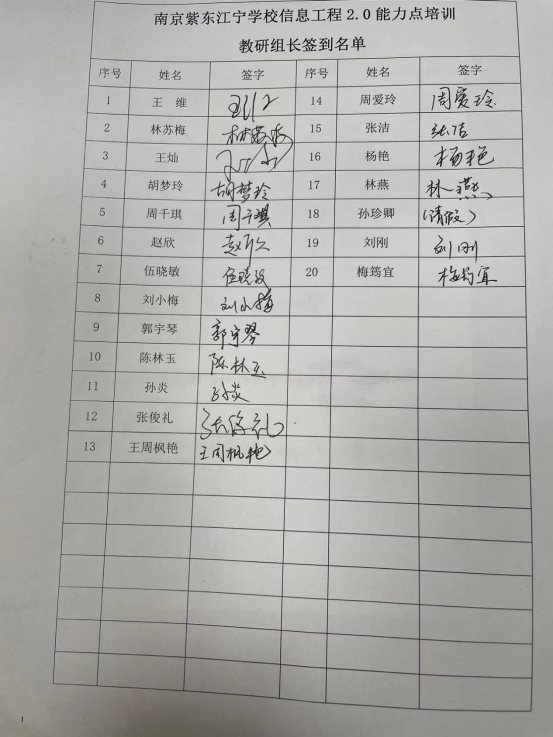 南京紫东江宁学校信息工程 2.0 能力点培训
教研组长签到名单
序号 姓名 签字 序号 姓名 签字
1 王 维 14 周爱玲 周爱玲
2 林苏梅 林苏梅 15 张洁 张洁
3 王灿 16 杨艳 杨艳
4 胡梦玲 胡梦玲 17 林燕 林燕
5 周千琪 周千琪 18 孙珍卿 (请假)
6 赵欣 赵欣 19 刘刚 刘刚
7 伍晓敏 伍晓敏 20 梅筠宜 梅筠宜
8 刘小梅 刘小梅
9 郭宇琴 郭宇琴
10 陈林玉 陈林玉
11 孙炎 孙炎
12 张俊礼 张俊礼
13 王周枫艳 王周枫艳